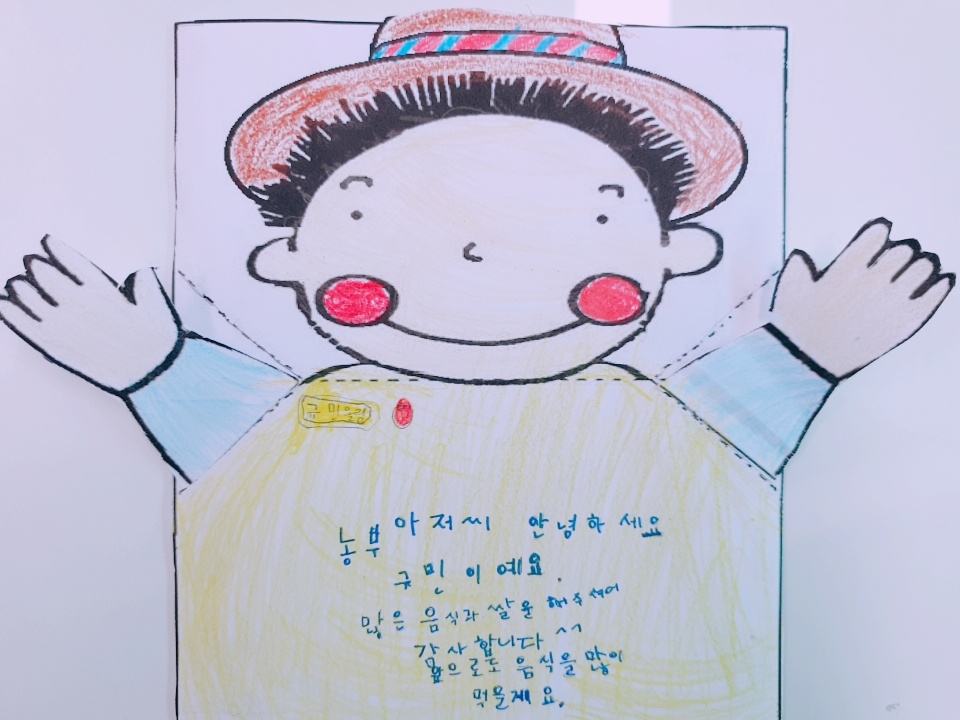 농부 아저씨 안녕하세요
규민이예요.
많은 음식과 쌀을 해주셔어
감사합니다 ^^
앞으로도 음식을 많이
먹을게요.